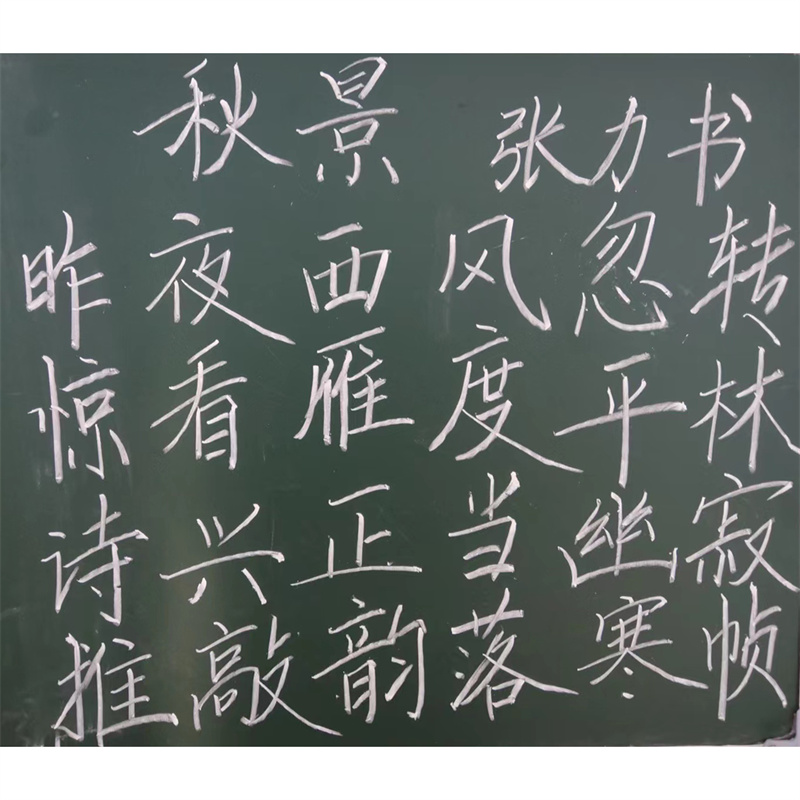 秋景 张力书
昨夜西风忽转
惊看雁度平林
诗兴正当幽寂
推敲韵落寒帧